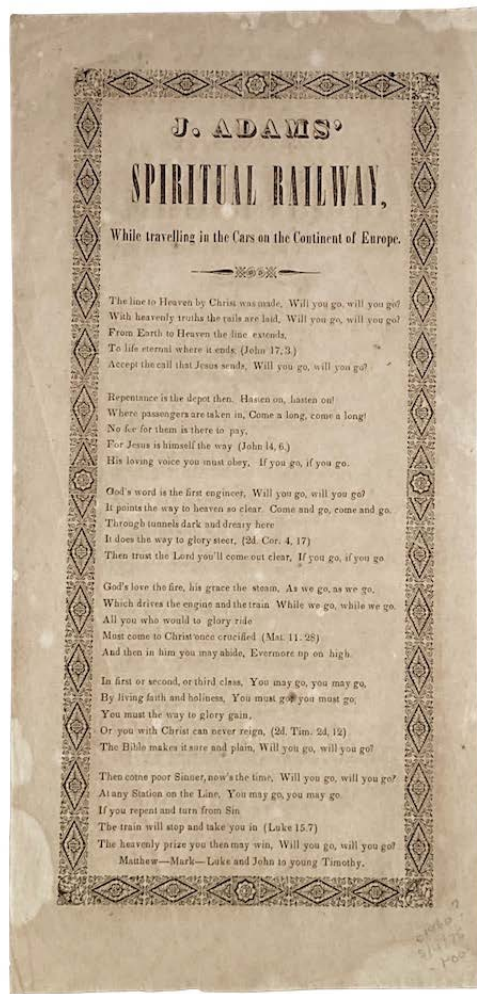 J. ADAMS'
SPIRITUAL RAILWAY,
While travelling in the Cars on the Continent of Europe.
The line to Heaven by Christ was made, Will you go, will you go?
With heavenly truths the rails are laid, Will you go, will you go?
From Earth to Heaven the line extends,
To life eternal where it ends. (John 17, 3.)
Accept the call that Jesus sends, Will you go, will you go?
Repentance is the depot then, Hasten on, hasten on!
Where passengers are taken in, Come a long, come a long!
No fee for them is there to pay,
For Jesus is himself the way (John 14, 6.)
His loving voice you must obey, If you go, if you go.
God's word is the first engineer, Will you go, will you go?
It points the way to heaven so clear. Come and go, come and go.
Through tunnels dark and dreary here
It does the way to glory steer, (2d. Cor. 4, 17)
Then trust the Lord you'll come out clear, If you go, if you go
God's love the fire, his grace the steam, As we go, as we go,
Which drives the engine and the train While we go, while we go.
All you who would to glory ride
Must come to Christ once crucified (Mat. 11. 28)
And then in him you may abide, Evermore up on high.
In first or second, or third class, You may go, you may go,
By living faith and holiness, You must go, you must go;
You must the way to glory gain,
Or you with Christ can never reign, (2d. Tim. 2d, 12)
The Bible makes it sure and plain, Will you go, will you go?
Then come poor Sinner, now's the time, Will you go, will you go?
At any Station on the Line, You may go, you may go.
If you repent and turn from Sin
The train will stop and take you in (Luke 15.7)
The heavenly prize you then may win, Will you go, will you go?
Matthew—Mark—Luke and John to young Timothy.